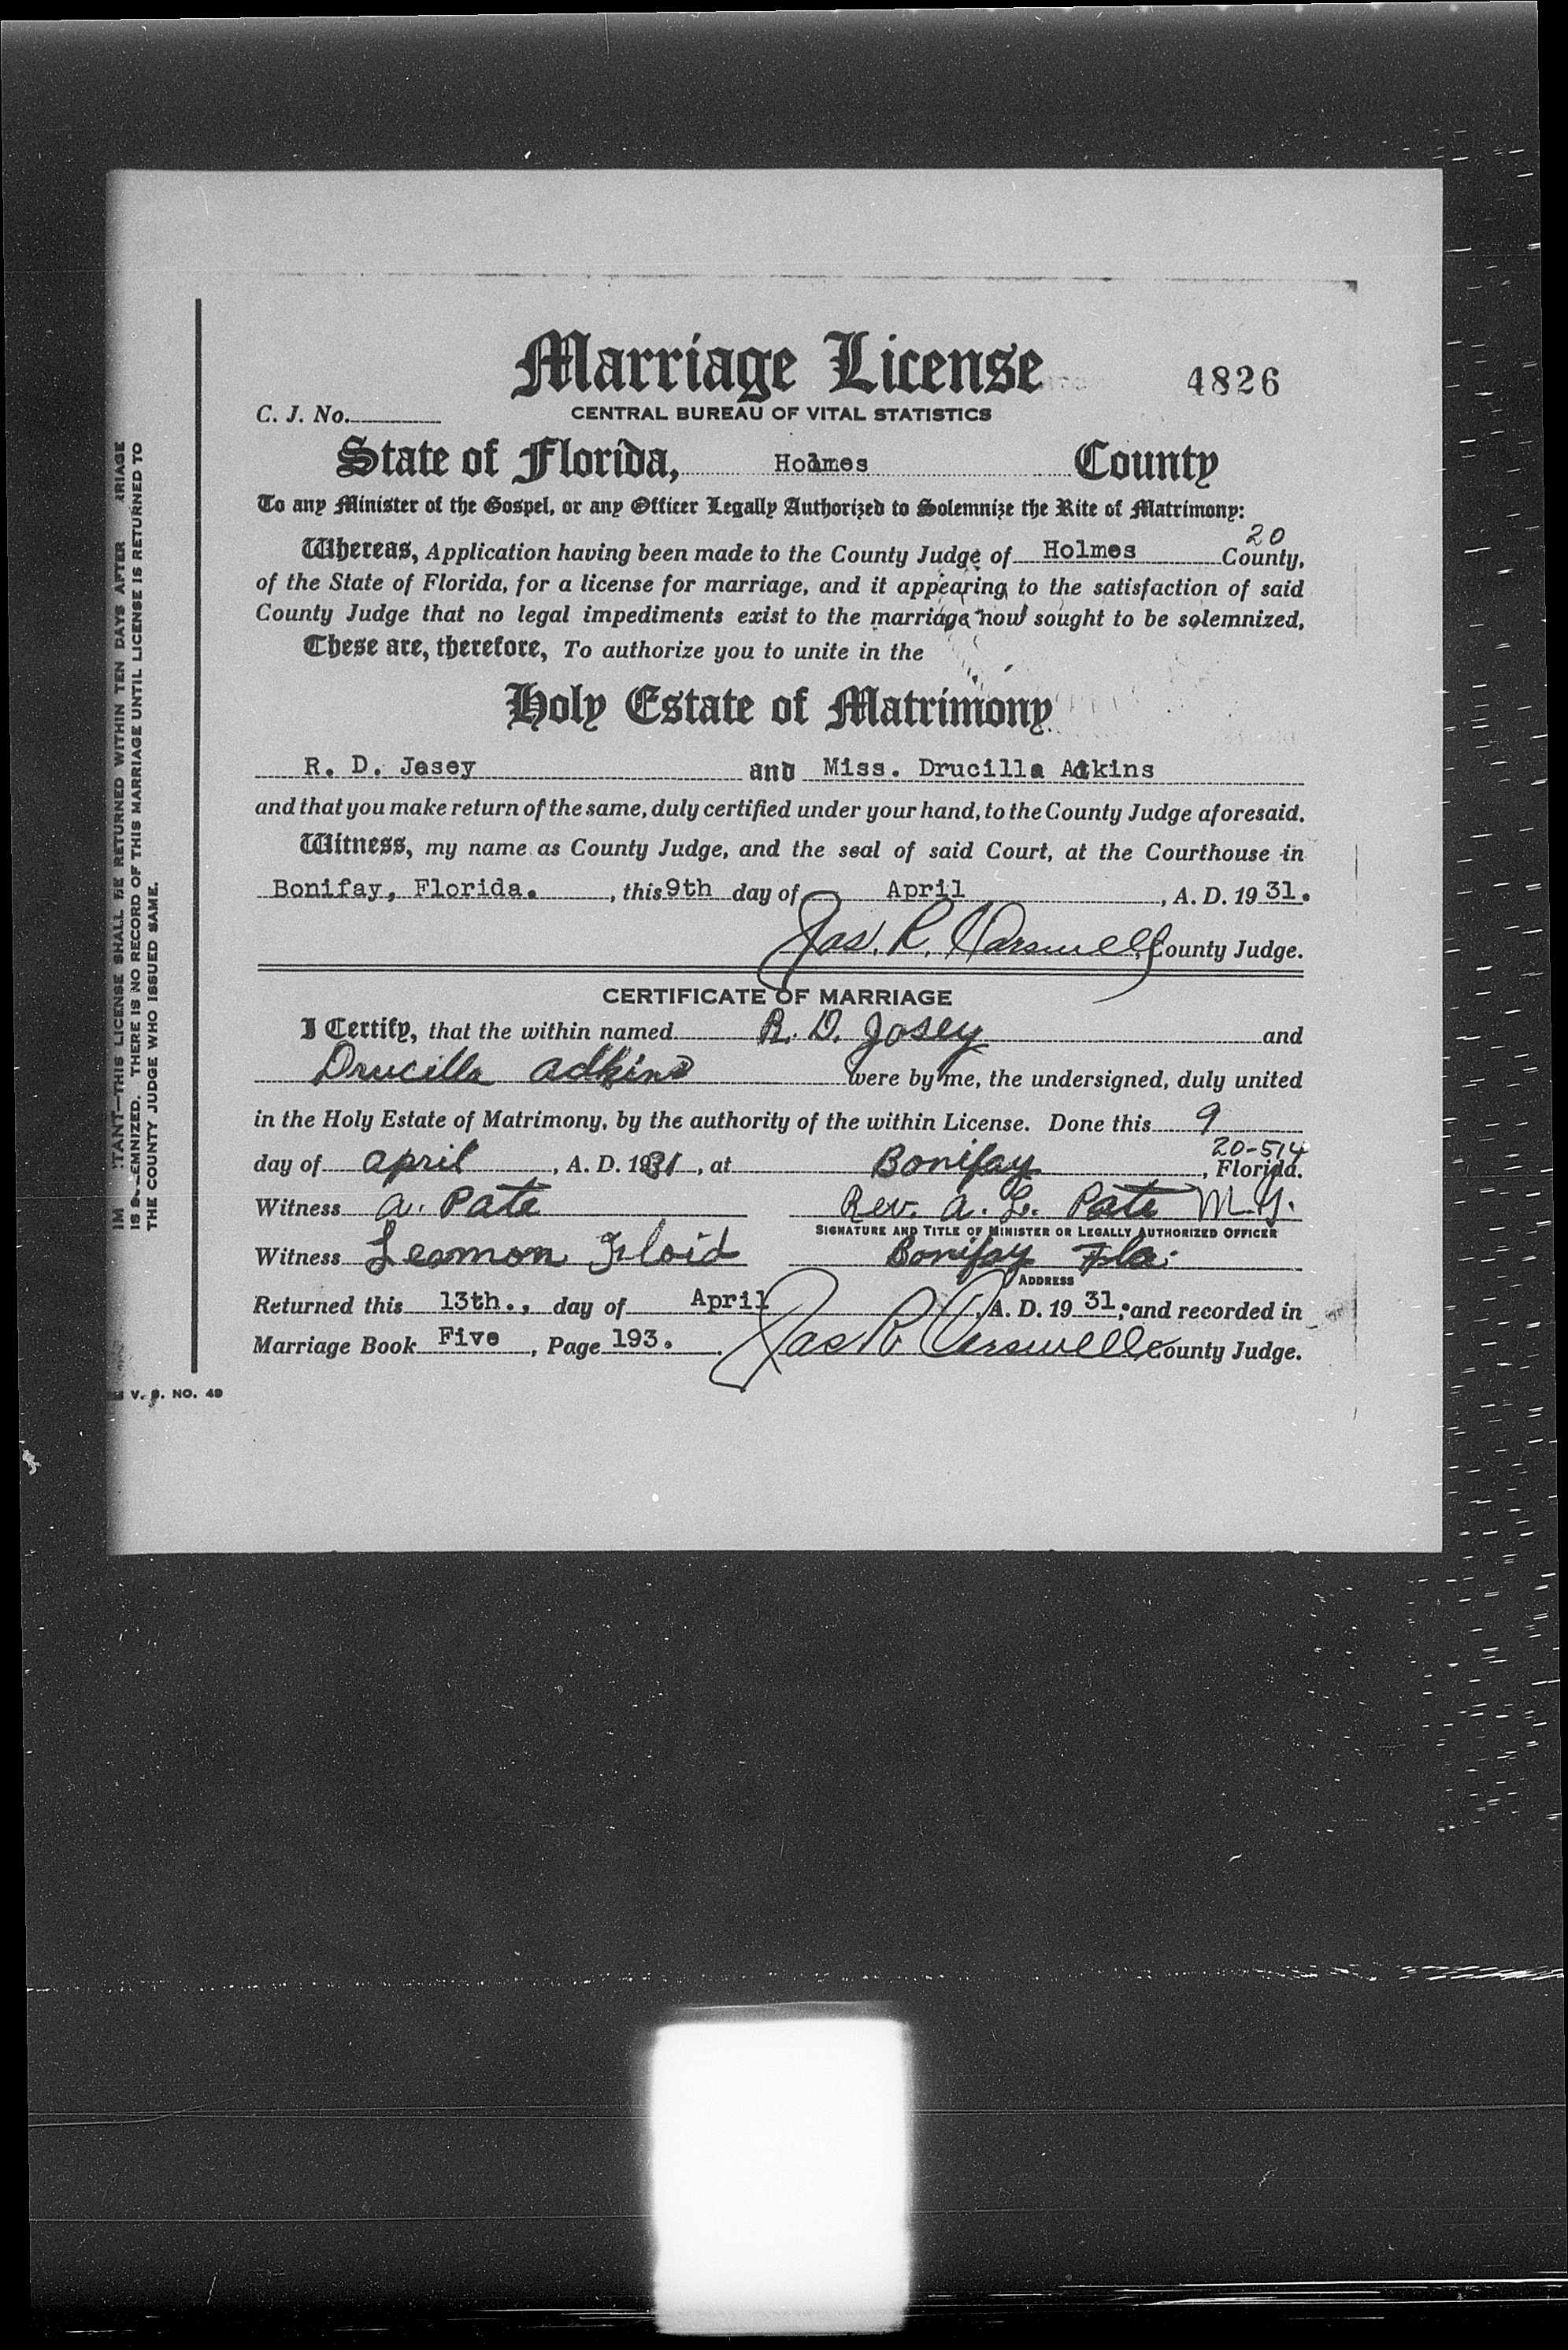 Marriage License
4826
C. J. No.
CENTRAL BUREAU OF VITAL STATISTICS
State of Florida, Holmes County
To any Minister of the Gospel, or any Officer Legally Authorized to Solemnize the Rite of Matrimony:
20
Whereas, Application having been made to the County Judge of Holmes County,
of the State of Florida, for a license for marriage, and it appearing to the satisfaction of said
County Judge that no legal impediments exist to the marriage now sought to be solemnized,
These are, therefore, To authorize you to unite in the
Holy Estate of Matrimony
R. D. Jasey and Miss. Drucilla Adkins
and that you make return of the same, duly certified under your hand, to the County Judge aforesaid.
Witness, my name as County Judge, and the seal of said Court, at the Courthouse in
Bonifay, Florida. , this 9th day of April , A. D. 19 31.
Jas. R. Carswell, County Judge.
CERTIFICATE OF MARRIAGE
I Certify, that the within named R. D. Josey and
Drucilla adkins were by me, the undersigned, duly united
in the Holy Estate of Matrimony, by the authority of the within License. Done this 9
20-514
day of april , A. D. 1931 , at Bonifay , Florida.
Witness a. Pate Rev. a. L. Pate M. G.
SIGNATURE AND TITLE OF MINISTER OR LEGALLY AUTHORIZED OFFICER
Witness Leamon Floid Bonifay Fla.
ADDRESS
Returned this 13th., day of April , A. D. 19 31, and recorded in
Marriage Book Five , Page 193. Jas R Carswell County Judge.
TANT—THIS LICENSE SHALL BE RETURNED WITHIN TEN DAYS AFTER
IS THERE IS NO RECORD OF THIS MARRIAGE UNTIL LICENSE IS RETURNED TO
THE COUNTY JUDGE WHO ISSUED SAME.
V. S. NO. 49